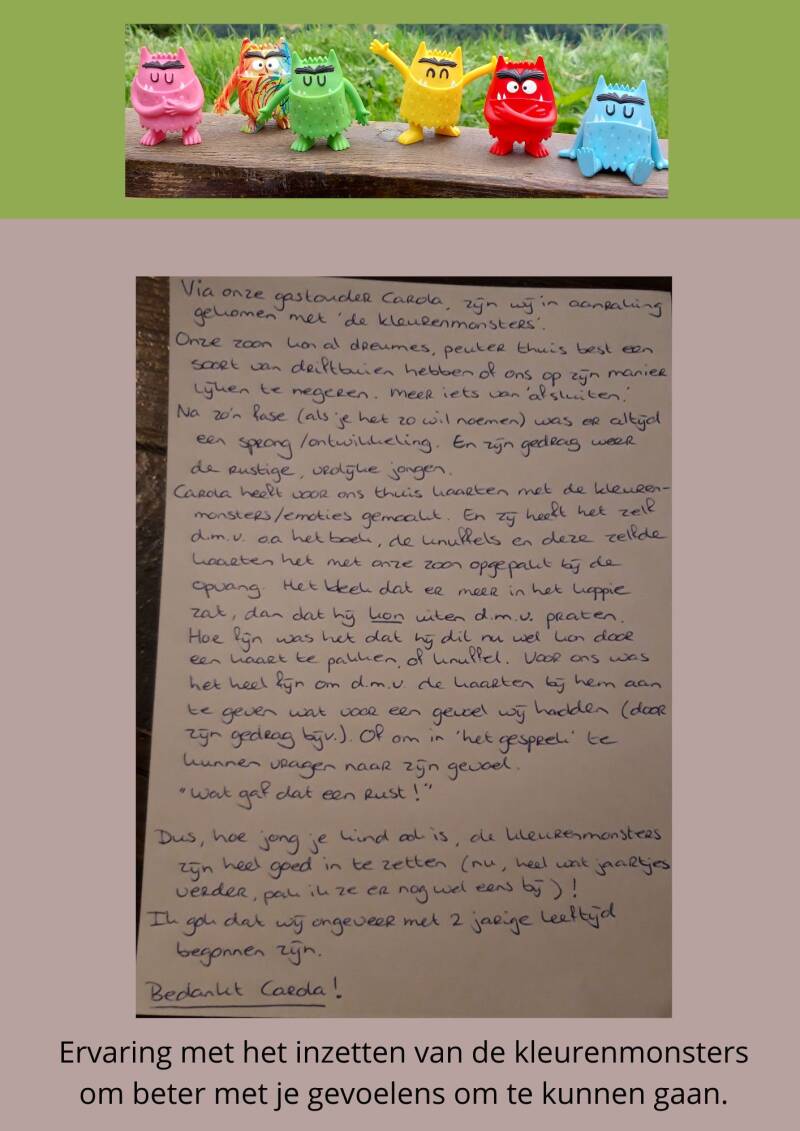 Via onze gastouder Carola, zijn wij in aanraking
gekomen met 'de kleurenmonsters'.
Onze zoon kon al dreumes, peuter thuis best een
soort van driftbuien hebben of ons op zijn manier
lijken te negeren. Meer iets van 'afsluiten.'
Na zo'n fase (als je het zo wil noemen) was er altijd
een sprong/ontwikkeling. En zijn gedrag weer
de rustige, vrolijke jongen.
Carola heeft voor ons thuis kaarten met de kleuren-
monsters/emoties gemaakt. En zij heeft het zelf
d.m.v. o.a het boek, de knuffels en deze zelfde
kaarten het met onze zoon opgepakt bij de
opvang. Het bleek dat er meer in het koppie
zat, dan dat hij kon uiten d.m.v. praten.
Hoe fijn was het dat hij dit nu wel kon door
een kaart te pakken, of knuffel. Voor ons was
het heel fijn om d.m.v. de kaarten bij hem aan
te geven wat voor een gevoel wij hadden (door
zijn gedrag bijv.). Of om in 'het gesprek' te
kunnen vragen naar zijn gevoel.
"Wat gaf dat een rust!"
Dus, hoe jong je kind ook is, de kleurenmonsters
zijn heel goed in te zetten (nu, heel wat jaartjes
verder, pak ik ze er nog wel eens bij)!
Ik gok dat wij ongeveer met 2 jarige leeftijd
begonnen zijn.
Bedankt Carola!
Ervaring met het inzetten van de kleurenmonsters
om beter met je gevoelens om te kunnen gaan.